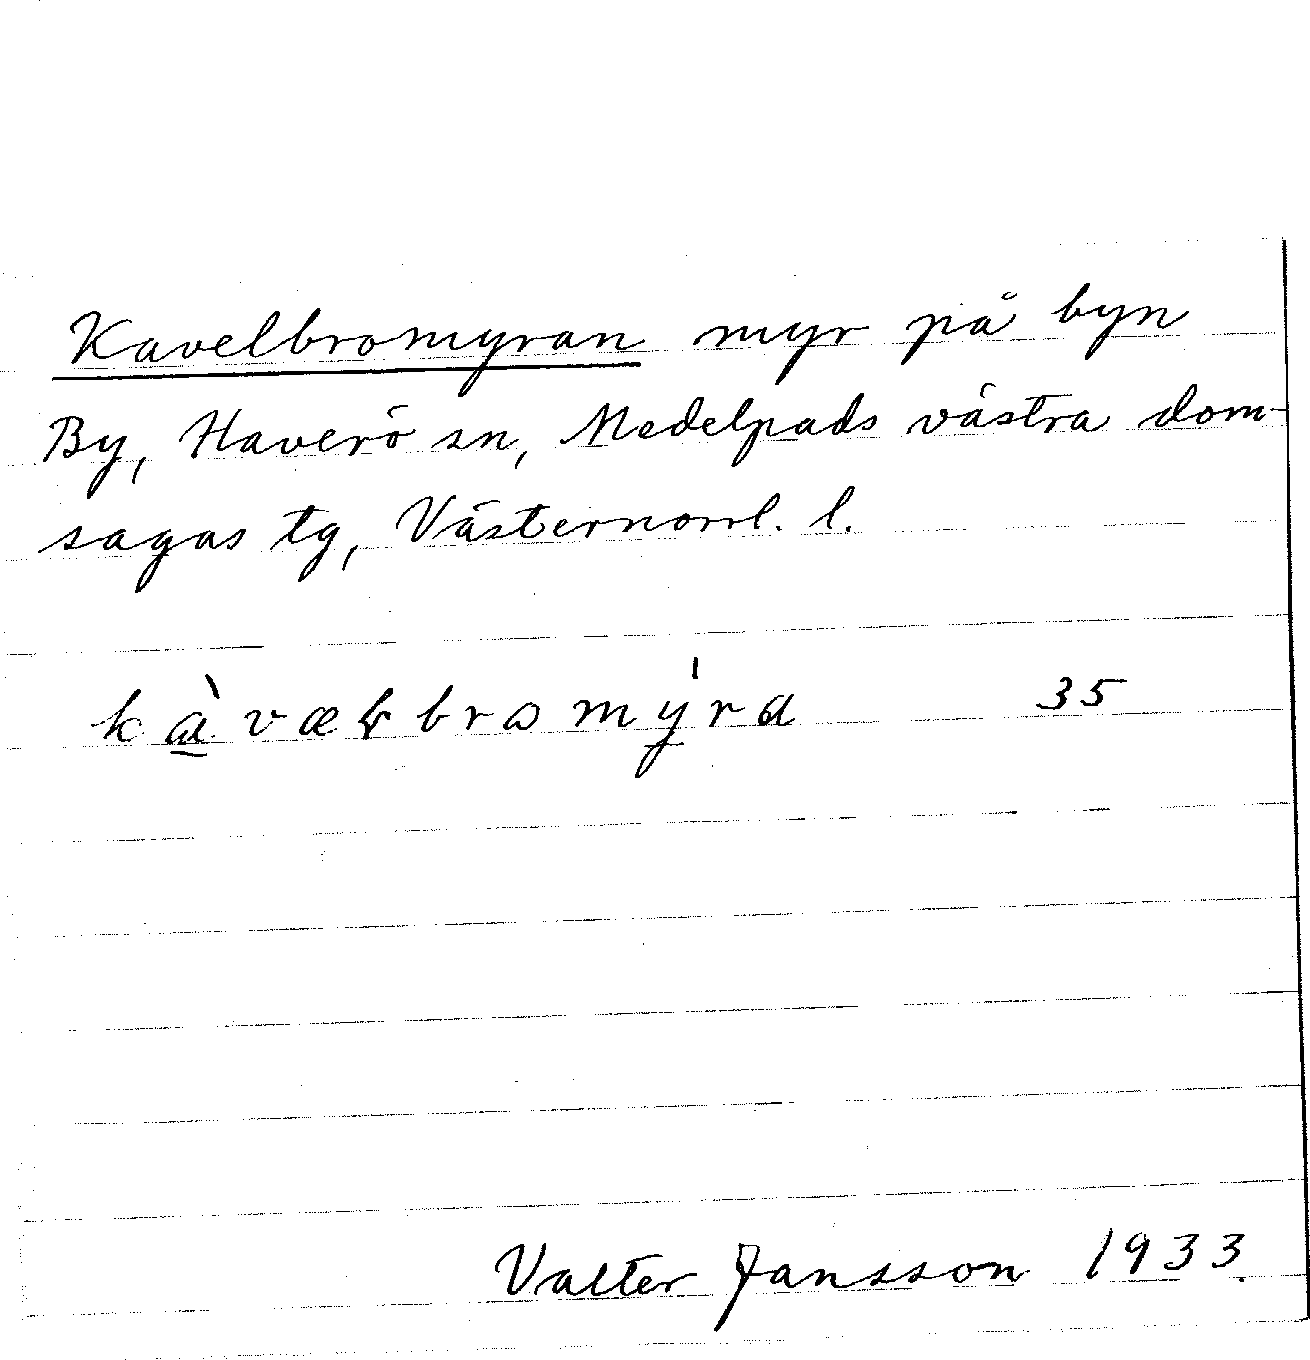 Kavelbromyran myr på byn
By, Haverö sn, Medelpads västra dom-
sagas tg, Västernorrl. l.
kàvæɽbromy̍ra 35
Valter Jansson 1933.